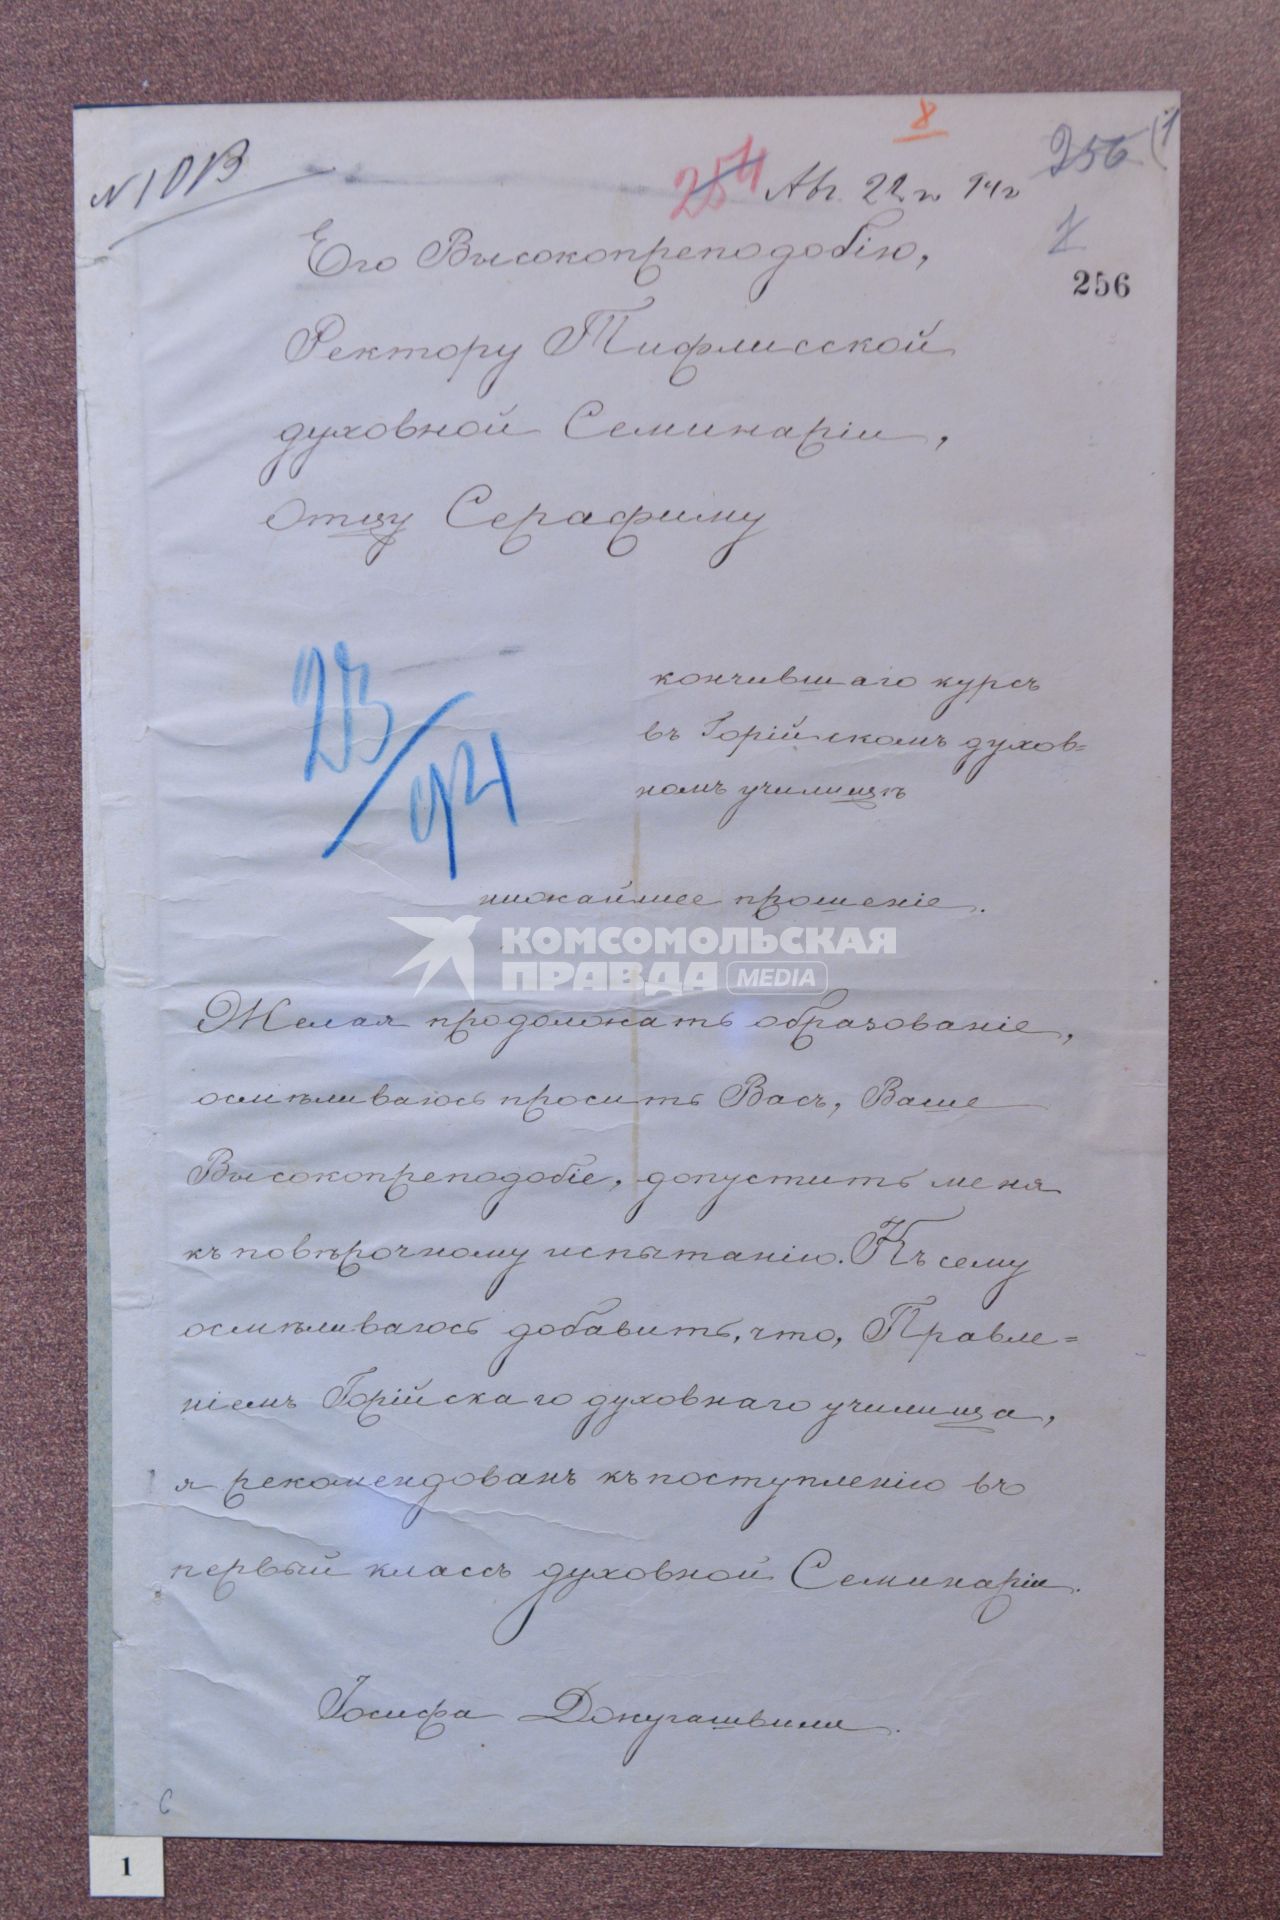 8
254 Авг. 22 94 г
256
1
256
Его Высокопреподобію,
Ректору Тифлисской
духовной Семинаріи,
Отцу Серафиму
23/94
кончившаго курсъ
въ Горійскомъ духов=
номъ училищѣ
нижайшее прошеніе.
КОМСОМОЛЬСКАЯ
ПРАВДА MEDIA
Желая продолжать образованіе,
осмѣливаюсь просить Васъ, Ваше
Высокопреподобіе, допустить меня
къ повѣрочному испытанію. Къ сему
осмѣливаюсь добавить, что, Правле=
ніемъ Горійскаго духовнаго училища,
я рекомендованъ къ поступленію въ
первый классъ духовной Семинаріи.
Іосифа Джугашвили.
1